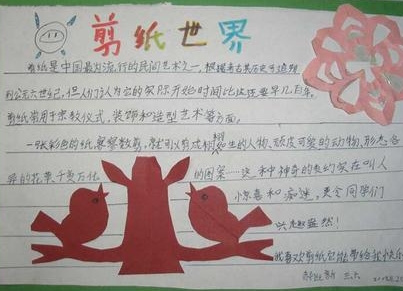 剪纸世界
剪纸是中国最为流行的民间艺术之一,根据考古其历史可追朔
到公元六世纪,但人们认为它的实际开始时间比这还要早几百年。
剪纸常用于宗教仪式,装饰和造型艺术等方面。
一张彩色的纸,察察数剪,就可以剪成栩栩如生的人物,顽皮可爱的动物,形态各
异的花草千变万化 的图案……这一种神奇的表约实在叫人
惊喜和痴迷,更令同学们
兴趣盎然!
我喜欢剪纸它能带给我快乐
三六